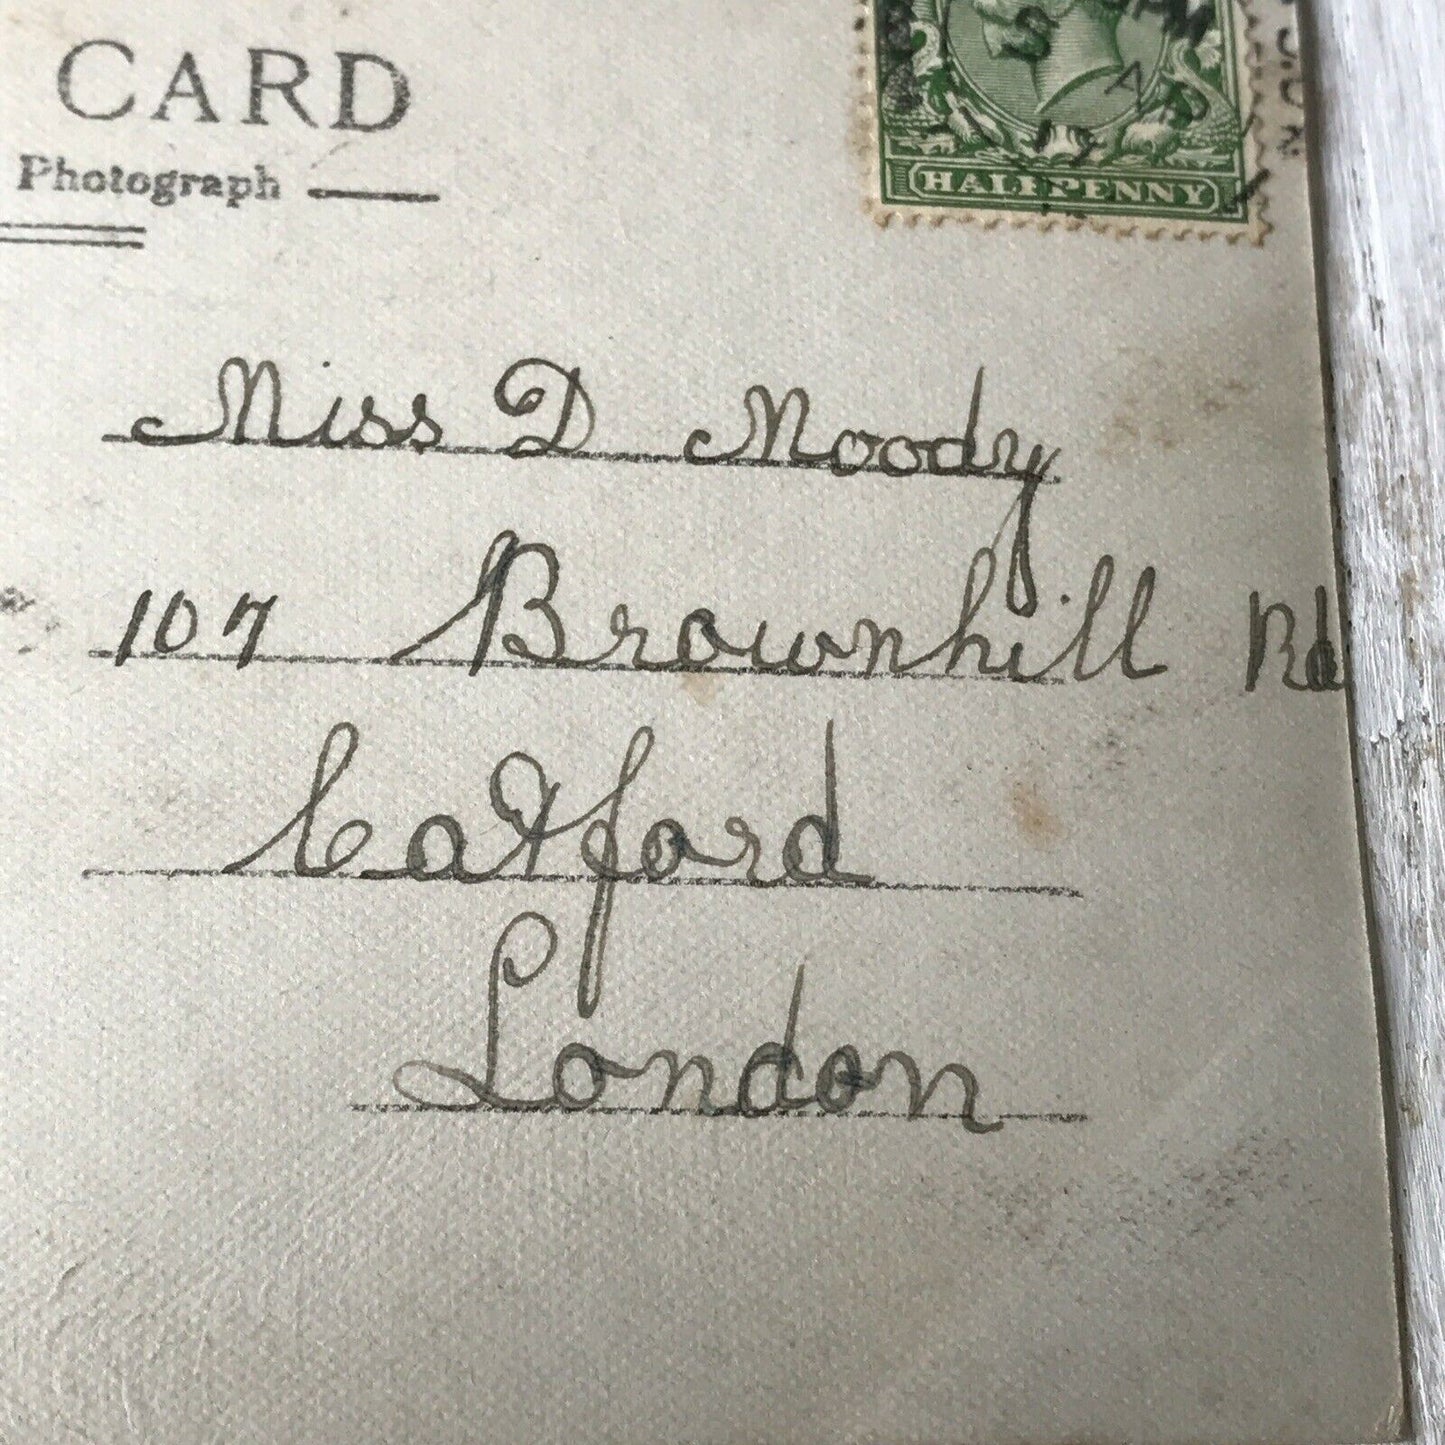 CARD
Photograph
S PM
AP
17
HALFPENNY
Miss D Moody
107 Brownhill Rd
Catford
London